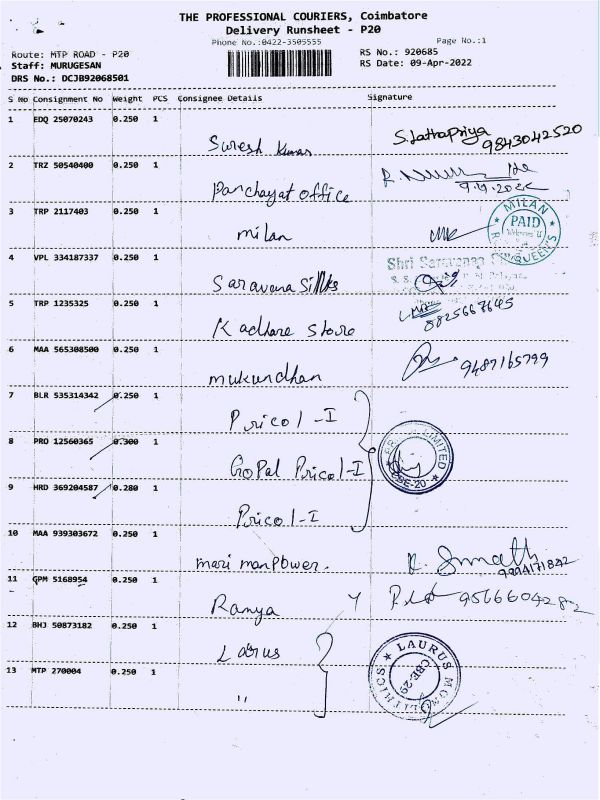 THE PROFESSIONAL COURIERS, Coimbatore
Delivery Runsheet - P20
Phone No.:0422-3505555
Page No.:1
Route: MTP ROAD - P20
RS No.: 920685
Staff: MURUGESAN
RS Date: 09-Apr-2022
DRS No.: DCJB92068501
S No Consignment No Weight PCS Consignee Details Signature
1 EDQ 25070243 0.250 1
Suresh Kumar S.Lathapriya 9843042520
2 TRZ 50540400 0.250 1
Panchayat office
3 TRP 2117403 0.250 1
milan MILAN PAID QUEEN'S
4 VPL 334187337 0.250 1
Saravana Silks Shri Saravanaa
5 TRP 1235325 0.250 1
Kadhare Store 8825667645
6 MAA 565308500 0.250 1
mukundhan 9487165799
7 BLR 535314342 0.250 1
Pricol-I
8 PRO 12560365 0.300 1
GoPal Pricol-I LIMITED CBE-20
9 HRD 369204587 0.280 1
Pricol-I
10 MAA 939303672 0.250 1
mari manpower.
11 GPM 5168954 0.250 1
Ranya
12 BHJ 50873182 0.250 1
Larus LAURUS CBE-29
13 MTP 270004 0.250 1
"